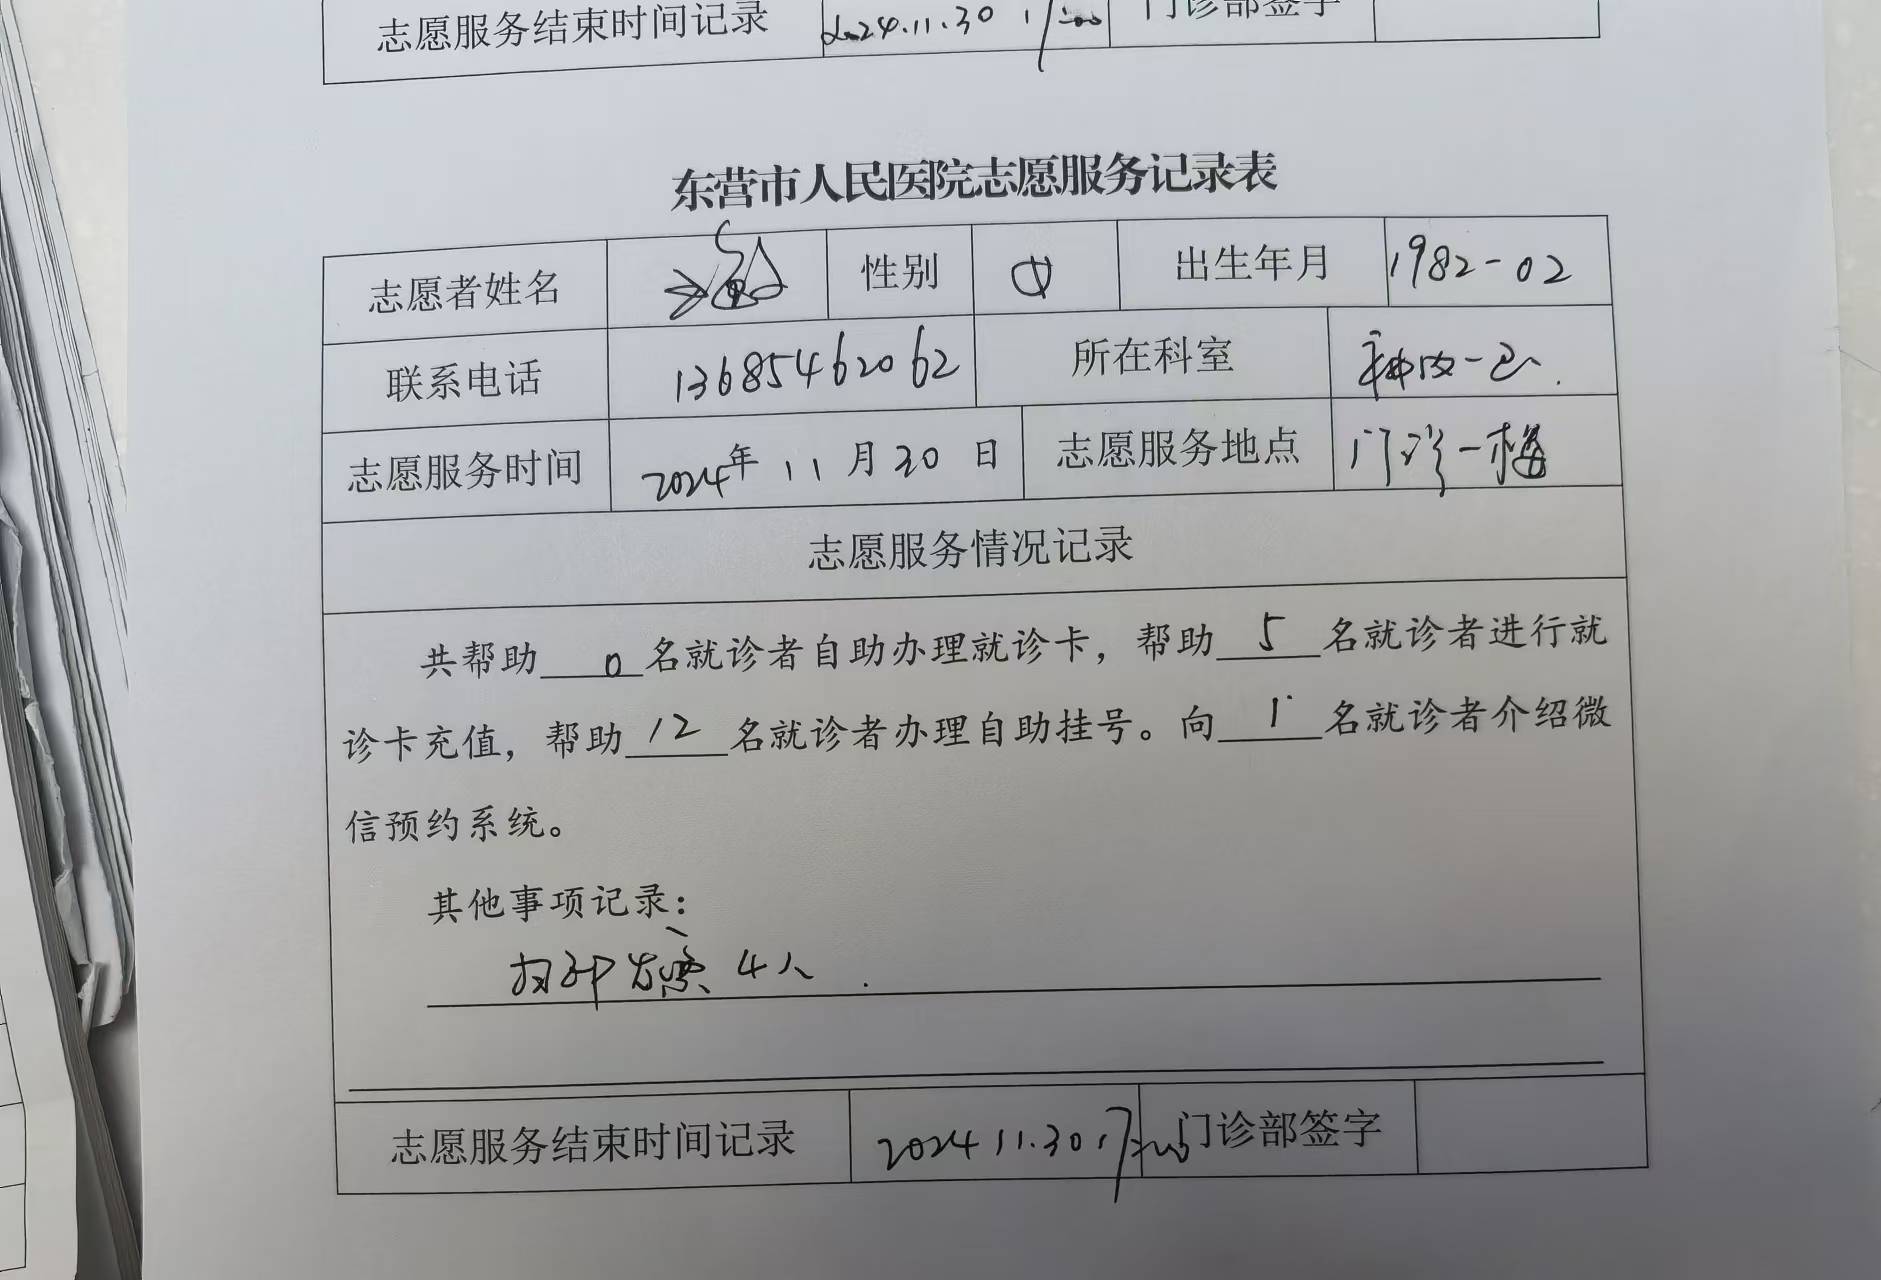 志愿服务结束时间记录 2024.11.30 17:00 门诊部签字
东营市人民医院志愿服务记录表
志愿者姓名 性别 女 出生年月 1982-02
联系电话 13685462062 所在科室 神内一区.
志愿服务时间 2024年 11 月 30 日 志愿服务地点 门诊一楼
志愿服务情况记录
共帮助 0 名就诊者自助办理就诊卡，帮助 5 名就诊者进行就
诊卡充值，帮助 12 名就诊者办理自助挂号。向 1 名就诊者介绍微
信预约系统。
其他事项记录：
打印发票 4人.
志愿服务结束时间记录 2024 11.30 17:00 门诊部签字